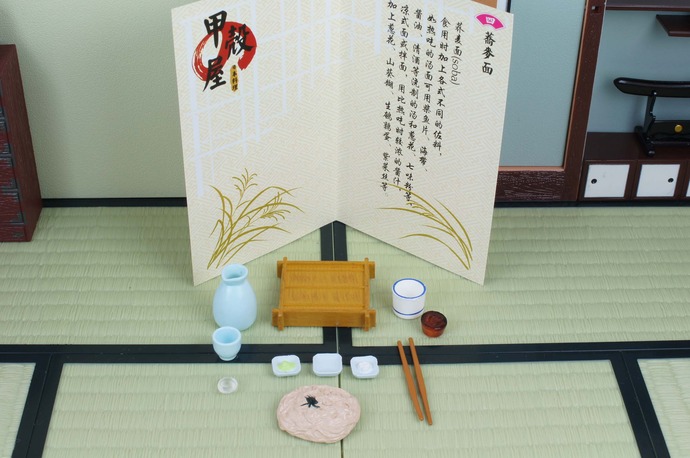 甲殼屋
日本料理
四
蕎麥面
荞麦面(soba)
食用时加上各式不同的佐料，
如热吃的汤面可用柴鱼片、海带、
酱油、清酒等法制的汤和葱花、七味粉等，
凉式面或拌面，用比热吃时较浓的酱汁
加上葱花、山葵糊、生鹌鹑蛋、紫菜丝等